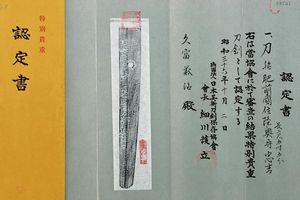 特別貴重
認定書
認定書
一、刀 銘 肥前國住陸奥守忠吉
右は當協會に於て審査の結果特別貴重
刀剣として認定する
昭和三十六年十月二日
財團法人日本美術刀剣保存協會
會長 細川護立
殿